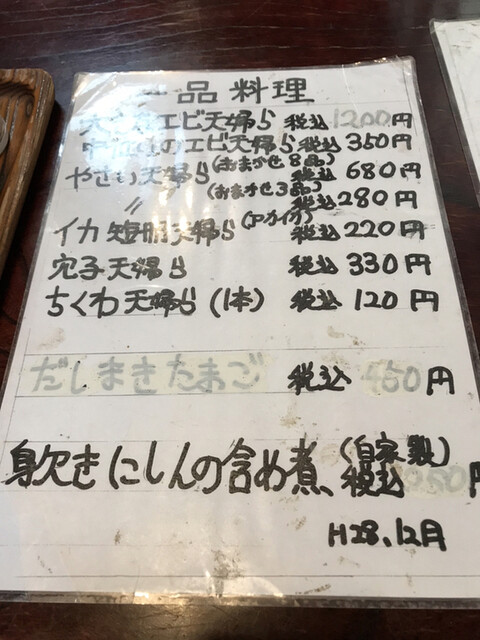 一品料理
エビ天婦ら 税込 1200円
のエビ天婦ら 税込 350円
やさい天婦ら (おまかせ8品) 税込 680円
〃 (おまかせ3品) 税込 280円
イカ短冊天婦ら (アカイカ) 税込 220円
穴子天婦ら 税込 330円
ちくわ天婦ら (1本) 税込 120円
だしまきたまご 税込 円
身欠きにしんの含め煮 (自家製) 税込 円
H28.12月